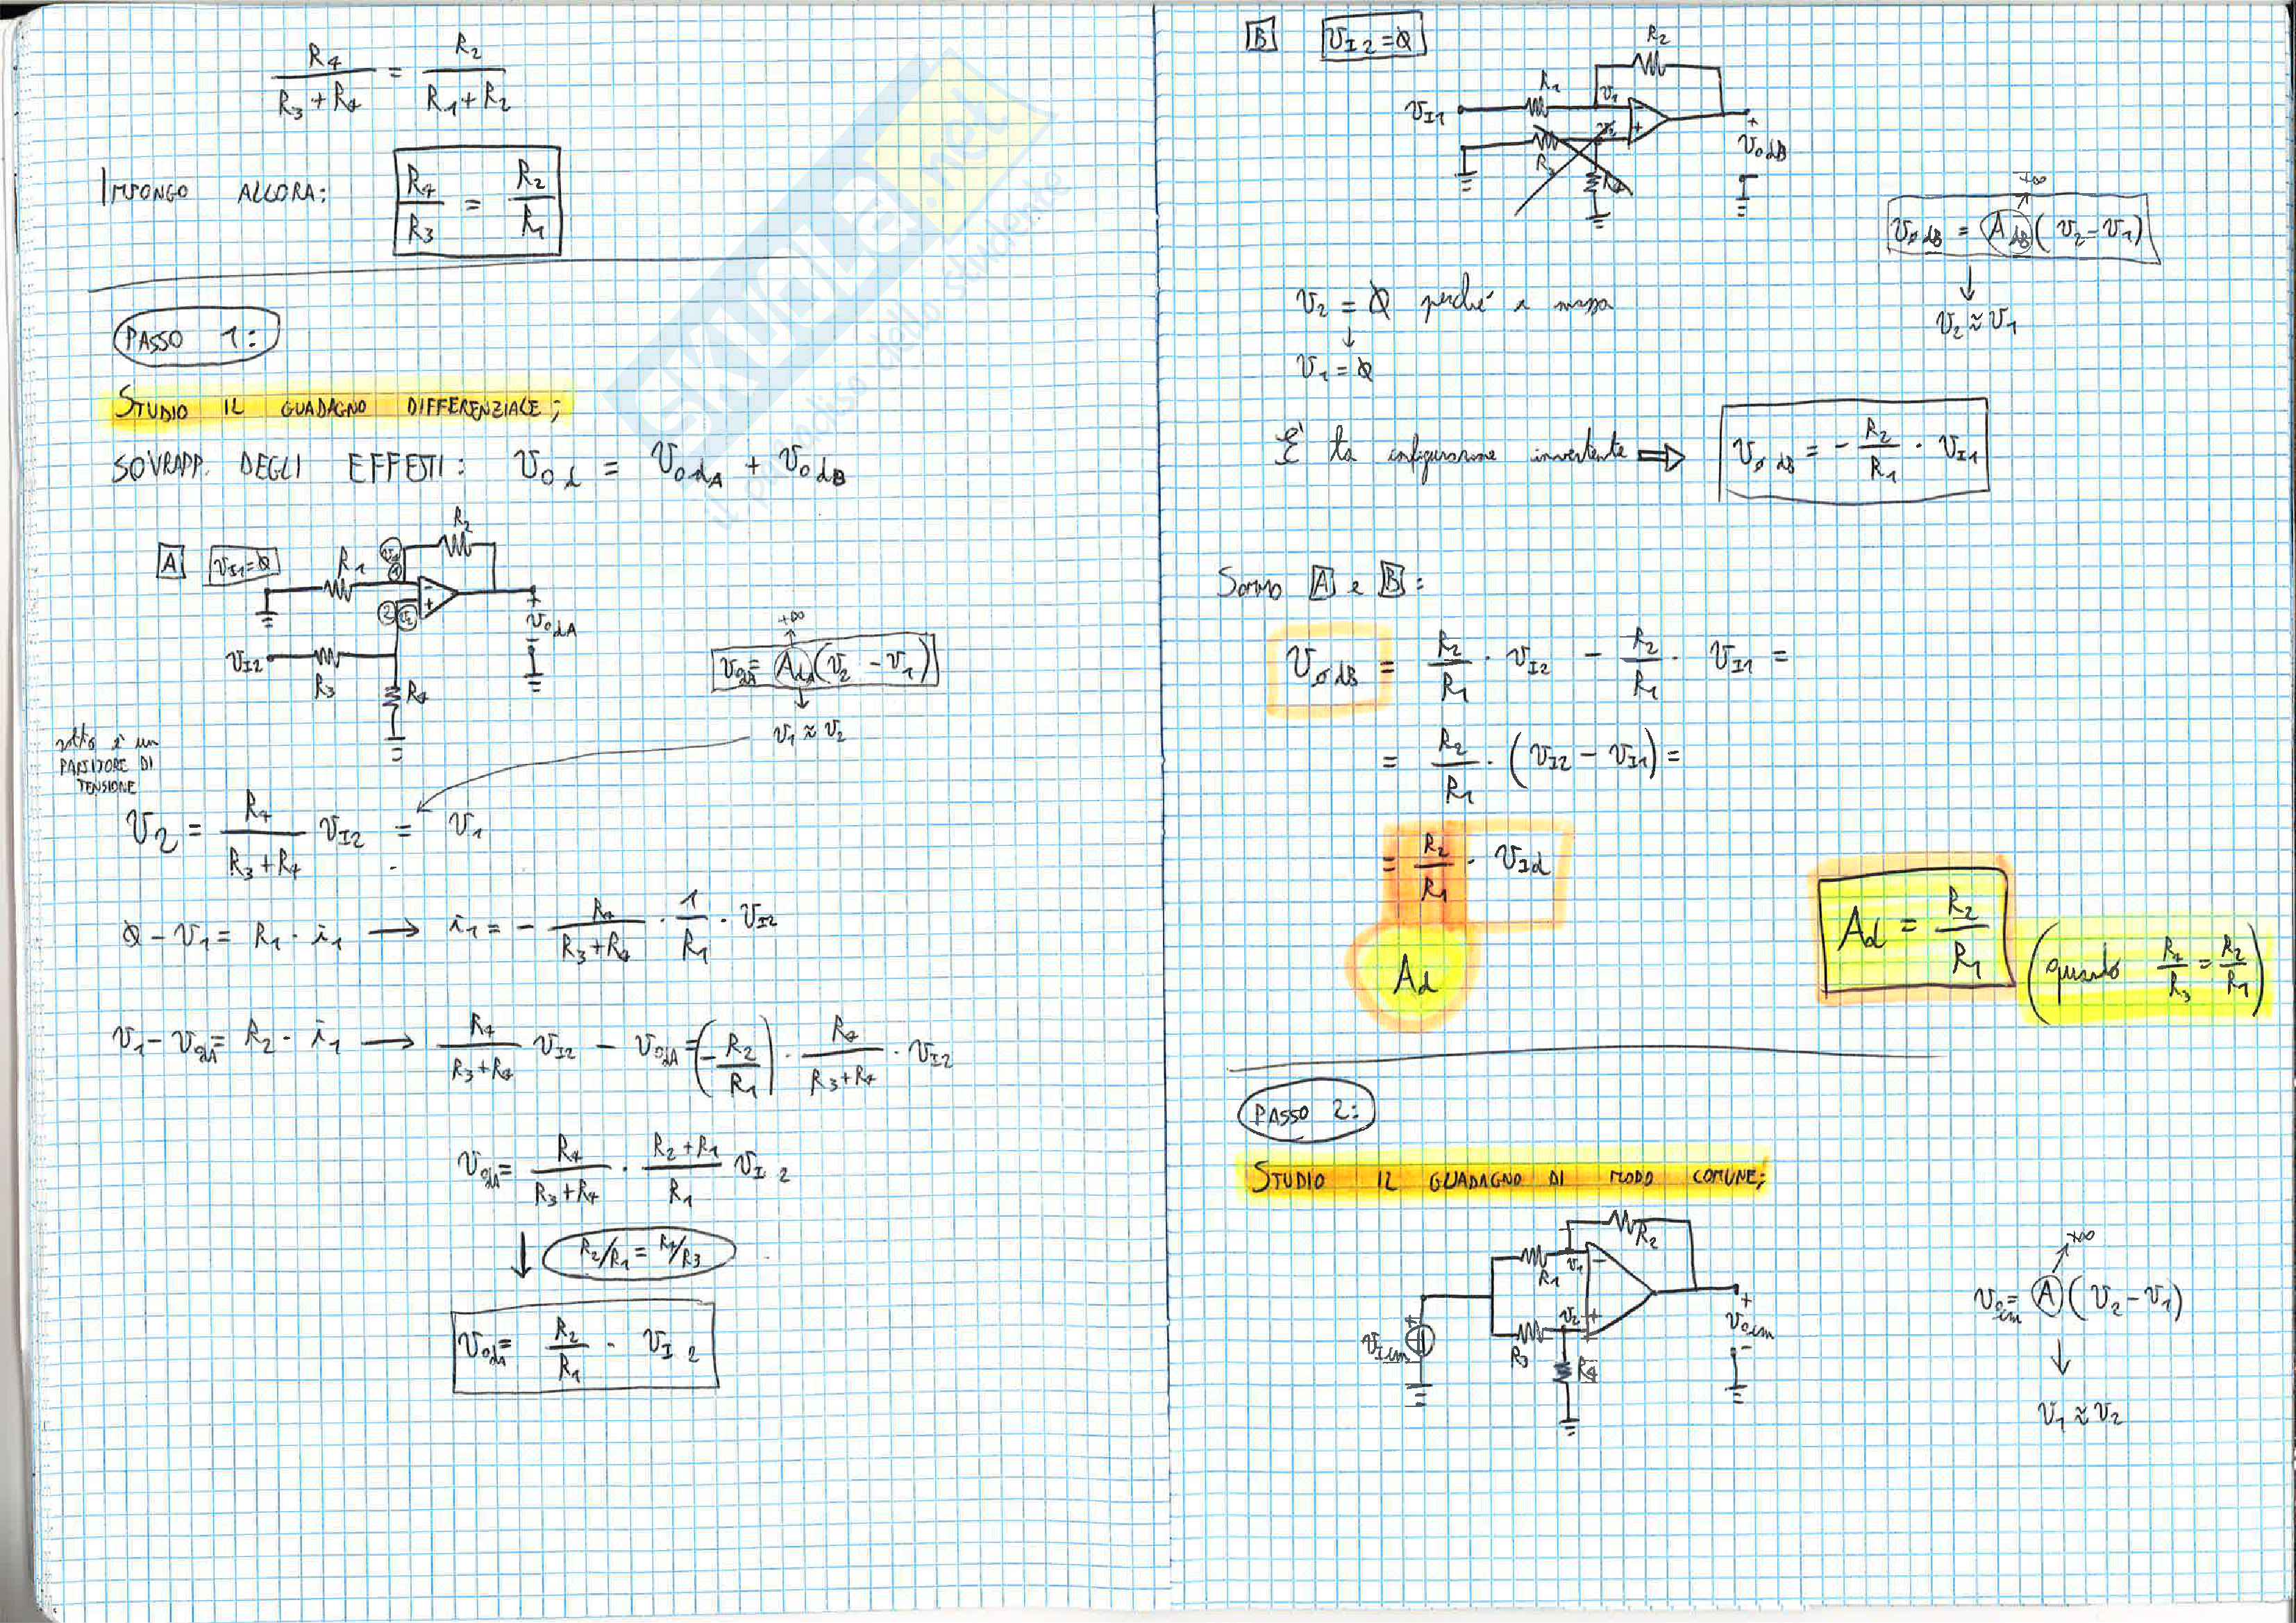 R4/(R3+R4) = R2/(R1+R2)
IMPONGO ALLORA: R4/R3 = R2/R1
PASSO 1:
STUDIO IL GUADAGNO DIFFERENZIALE;
SOVRAPP. DEGLI EFFETTI: vod = vodA + vodB
A vI1=0
R1
v1
1
R2
-
+
2
v2
+
vodA
-
vI2
R3
R4
+∞
vodA = Ad (v2 - v1)
v1 ≈ v2
è un
PARTITORE DI
TENSIONE
v2 = R4/(R3+R4) vI2 = v1
0 - v1 = R1 · i1 → i1 = - R4/(R3+R4) · 1/R1 · vI2
v1 - vodA = R2 · i1 → R4/(R3+R4) vI2 - vodA = (-R2/R1) · R4/(R3+R4) · vI2
vodA = R4/(R3+R4) · (R2+R1)/R1 vI2
↓ R2/R1 = R4/R3
vodA = R2/R1 · vI2
B vI2=0
R2
R1
v1
vI1
-
+
R3
R4
+
vodB
-
+∞
vodB = AdB (v2 - v1)
↓
v2 ≈ v1
v2 = 0 perché a massa
↓
v1 = 0
È la configurazione invertente ⇒ vodB = - R2/R1 · vI1
Sommo A e B:
vodB = R2/R1 · vI2 - R2/R1 · vI1 =
= R2/R1 · (vI2 - vI1) =
= R2/R1 · vId
Ad
Ad = R2/R1 (quando R4/R3 = R2/R1)
PASSO 2:
STUDIO IL GUADAGNO DI MODO COMUNE;
R2
R1
v1
-
v2
+
R3
R4
vIcm
+
vocm
-
+∞
vocm = A (v2 - v1)
↓
v1 ≈ v2
SKUOLA.net
il paradiso dello studente